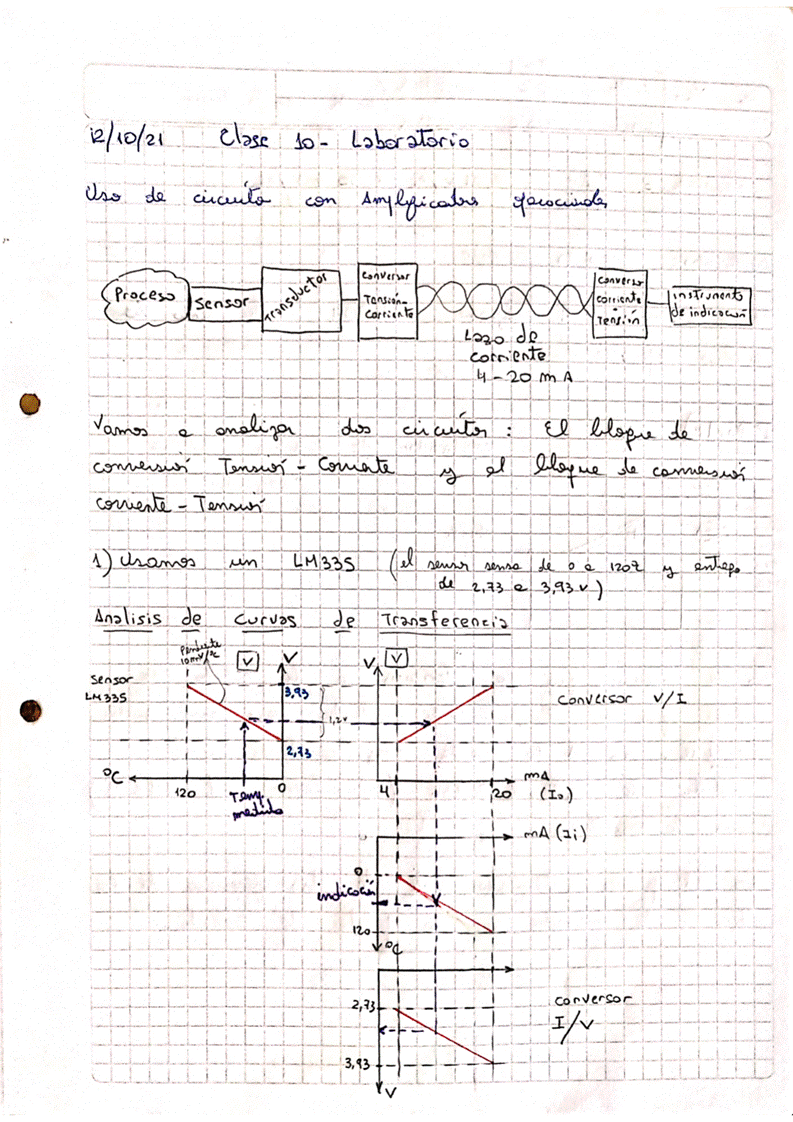 12/10/21 Clase 10 - Laboratorio
Uso de circuito con Amplificador operacionales
Proceso
Sensor
Transductor
conversor
Tensión-
Corriente
Lazo de
corriente
4 - 20 mA
conversor
corriente
Tensión
instrumento
de indicación
Vamos a analizar dos circuitos : El bloque de
conversión Tensión - Corriente y el bloque de conversión
corriente - Tensión
1) Usamos un LM335 (el sensor sensa de 0 a 120 y entrega
de 2,73 a 3,93 v)
Analisis de Curvas de Transferencia
Sensor
LM335
Pendiente
10mV/°c
V
V
3,93
1,2v
2,73
°C
120
0
Temp.
medida
V
V
4
20
mA
(Io)
conversor V/I
mA (Ii)
0
indicación
120
°C
2,73
3,93
V
conversor
I/V